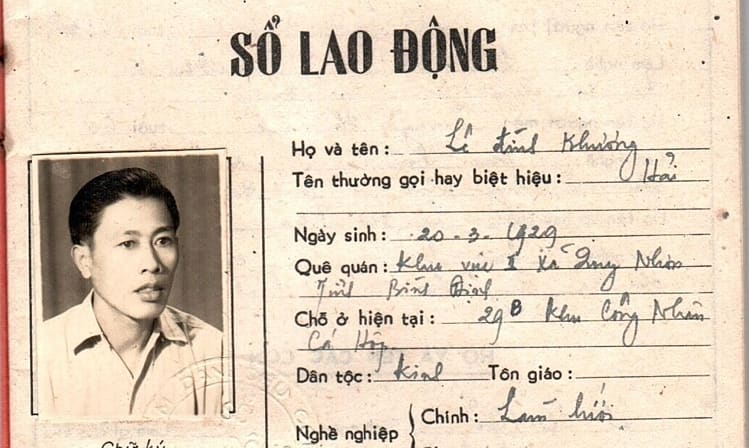 SỔ LAO ĐỘNG
Họ và tên: Lê Đình Khương
Tên thường gọi hay biệt hiệu: Hải
Ngày sinh: 20-3-1929
Quê quán: Khu vực I xã Quy Nhơn
Tỉnh Bình Định
Chỗ ở hiện tại: 29B Khu Công Nhân
Cá Hộp
Dân tộc: Kinh Tôn giáo:
Nghề nghiệp
Chính: Làm lưới
Chữ ký